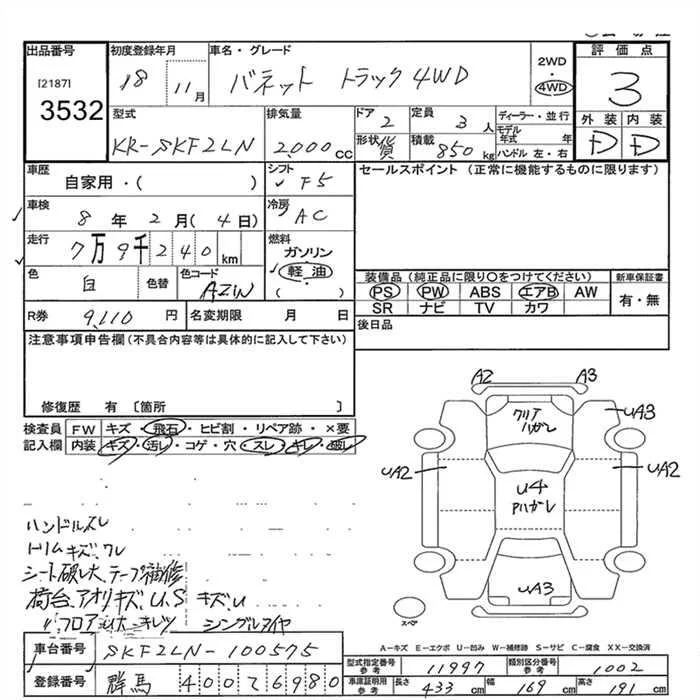 出品番号 初度登録年月 車名・グレード 評価点
[2187]
3532
18 11月 バネット トラック 4WD 2WD・4WD 3
型式 排気量 ドア 定員 ディーラー・並行 外装 内装
KR-SKF2LN 2,000cc 2 3人 モデル年式 年 D D
形状 貨 積載 850kg ハンドル 左・右
車歴 シフト セールスポイント (正常に機能するものに限ります)
自家用・( ) F5
車検 8年2月(4日) 冷房 AC
走行 7万9千240km 燃料 ガソリン
軽油
( )
色 白 色替 色コード AZW
装備品(純正品に限り○をつけてください) 新車保証書
PS PW ABS エアB AW 有・無
SR ナビ TV カワ
R券 9,110円 名変期限 月 日 後日品
注意事項申告欄(不具合内容等は具体的に記入して下さい)
修復歴 有 〔箇所 〕
検査員 FW キズ・飛石・ヒビ割・リペア跡・×要
記入欄 内装 キズ・汚レ・コゲ・穴・スレ・キレ・破レ
A2 A3
クリアハガレ
UA3
UA2 UA2
U4
Pハガレ
UA3
スペア
ハンドルスレ
トリムキズ、ワレ
シート破レ大、テープ補修
荷台、アオリキズ U、S キズU
フロアシート大キレツ シングルタイヤ
A－キズ E－エクボ U－凹み W－補修跡 S－サビ C－腐食 XX－交換済
車台番号 SKF2LN-100575
型式指定番号 参考 11997 類別区分番号 参考 1002
登録番号 群馬 400 た 6980
車庫証明用 参考 長さ 433cm 幅 169cm 高さ 191cm